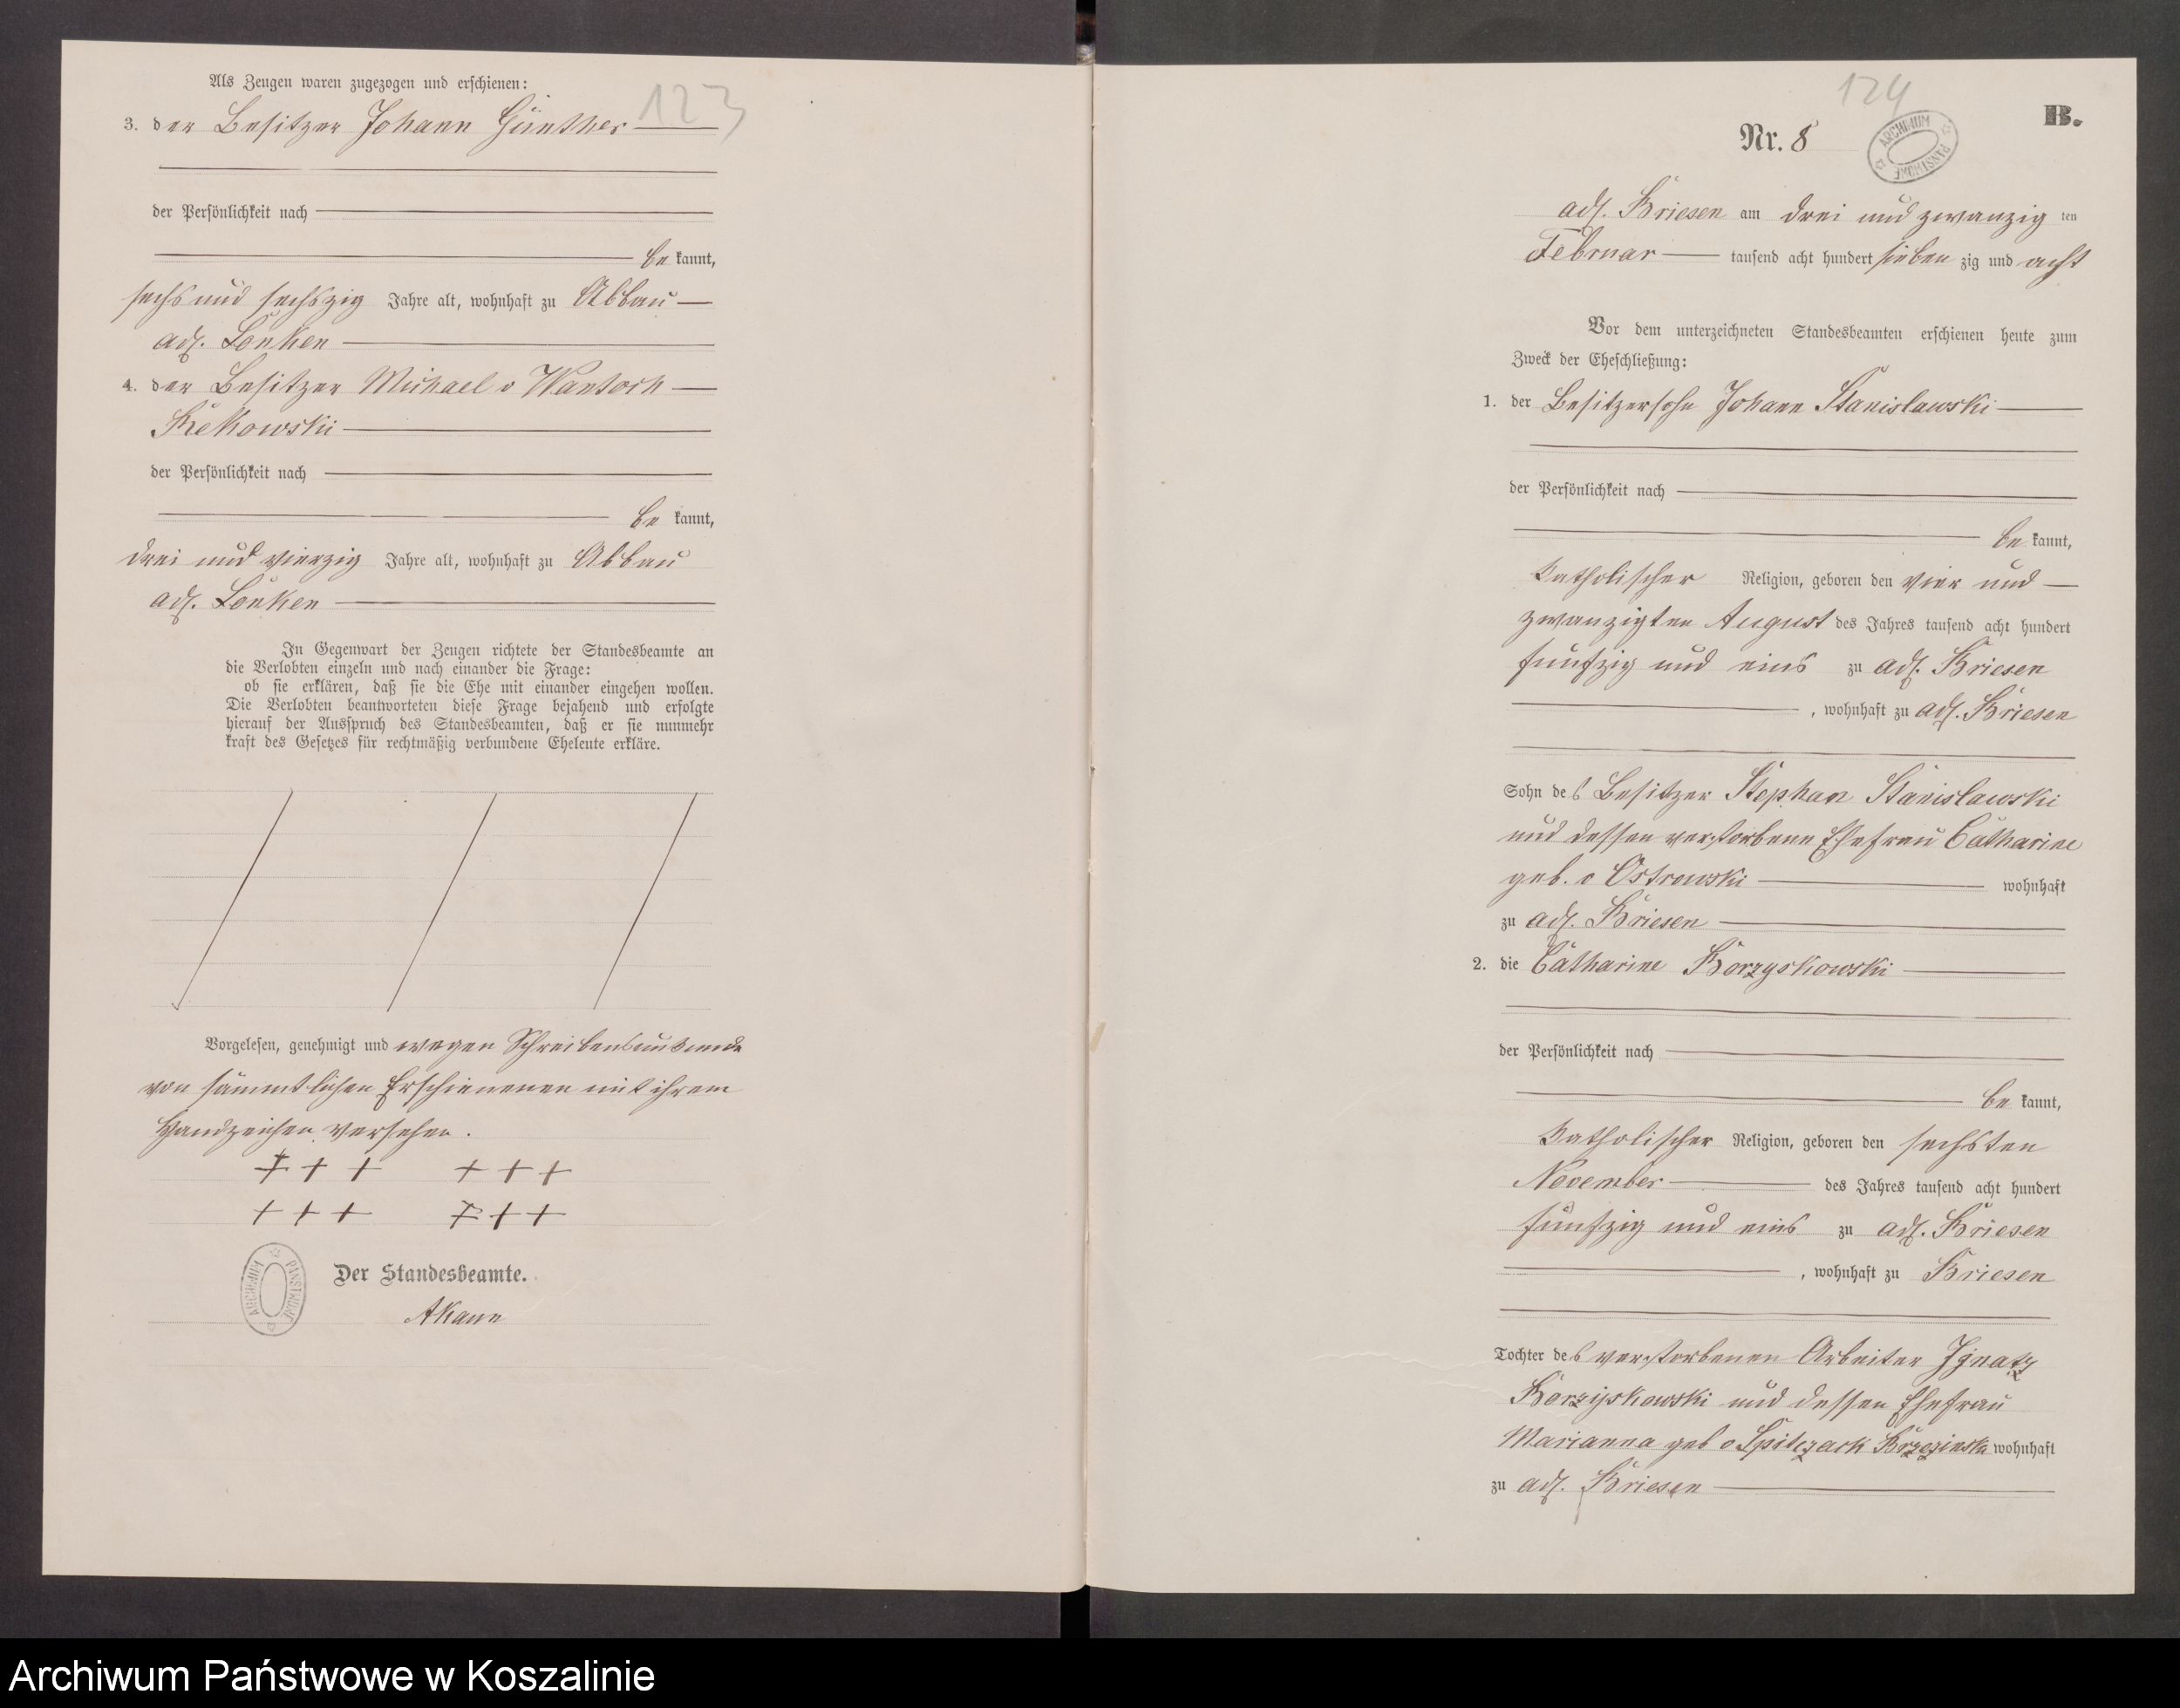 123
Als Zeugen waren zugezogen und erschienen:
3. der Besitzer Johann Günther
der Persönlichkeit nach
be kannt,
sechs und sechszig Jahre alt, wohnhaft zu Abbau
adl. Lonken
4. der Besitzer Michael v Wantoch
Rekowski
der Persönlichkeit nach
be kannt,
drei und vierzig Jahre alt, wohnhaft zu Abbau
adl. Lonken
In Gegenwart der Zeugen richtete der Standesbeamte an
die Verlobten einzeln und nach einander die Frage:
ob sie erklären, daß sie die Ehe mit einander eingehen wollen.
Die Verlobten beantworteten diese Frage bejahend und erfolgte
hierauf der Ausspruch des Standesbeamten, daß er sie nunmehr
kraft des Gesetzes für rechtmäßig verbundene Eheleute erkläre.
Vorgelesen, genehmigt und wegen Schreibensunkunde
von sämmtlichen Erschienenen mit ihrem
Handzeichen versehen.
+ + + + + +
+ + + + + +
ARCHIWUM PAŃSTWOWE
Der Standesbeamte.
124
B.
Nr. 8
ARCHIWUM PAŃSTWOWE
adl. Briesen am drei und zwanzig ten
Februar tausend acht hundert sieben zig und acht
Vor dem unterzeichneten Standesbeamten erschienen heute zum
Zweck der Eheschließung:
1. der Besitzersohn Johann Stanislawski
der Persönlichkeit nach
be kannt,
katholischer Religion, geboren den vier und
zwanzigten August des Jahres tausend acht hundert
funfzig und eins zu adl. Briesen
, wohnhaft zu adl. Briesen
Sohn des Besitzer Stephan Stanislawski
und dessen verstorbene Ehefrau Catharine
geb. v Ostrowski wohnhaft
zu adl. Briesen
2. die Catharine Borzyskowski
der Persönlichkeit nach
be kannt,
katholischer Religion, geboren den sechsten
November des Jahres tausend acht hundert
funfzig und eins zu adl. Briesen
, wohnhaft zu Briesen
Tochter des verstorbenen Arbeiter Ignatz
Borzyskowski und dessen Ehefrau
Marianna geb v Spitczack wohnhaft
zu adl. Briesen
Archiwum Państwowe w Koszalinie